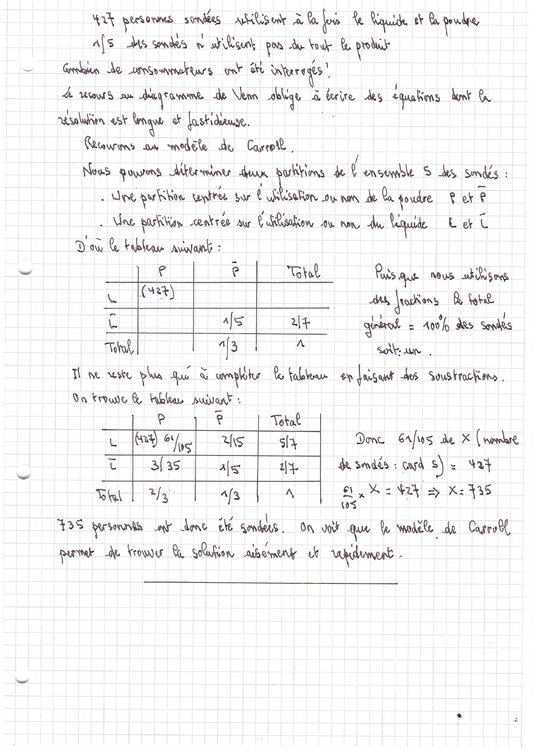 427 personnes sondées utilisent à la fois le liquide et la poudre
1/5 des sondés n'utilisent pas du tout le produit
Combien de consommateurs ont été interrogés!
Le recours au diagramme de Venn oblige à écrire des équations dont la
résolution est longue et fastidieuse.
Recourons au modèle de Carroll.
Nous pouvons déterminer deux partitions de l'ensemble S des sondés :
. Une partition centrée sur l'utilisation ou non de la poudre P et P̅
. Une partition centrée sur l'utilisation ou non du liquide L et L̅
D'où le tableau suivant :
P P̅ Total
L (427)
L̅ 1/5 2/7
Total 1/3 1
Puisque nous utilisons
des fractions le total
général = 100% des sondés
soit : un.
Il ne reste plus qu'à compléter le tableau en faisant des soustractions.
On trouve le tableau suivant :
P P̅ Total
L (427) 61/105 2/15 5/7
L̅ 3/35 1/5 2/7
Total 2/3 1/3 1
Donc 61/105 de X (nombre
de sondés : card S) = 427
61/105 × X = 427 => X = 735
735 personnes ont donc été sondées. On voit que le modèle de Carroll
permet de trouver la solution aisément et rapidement.